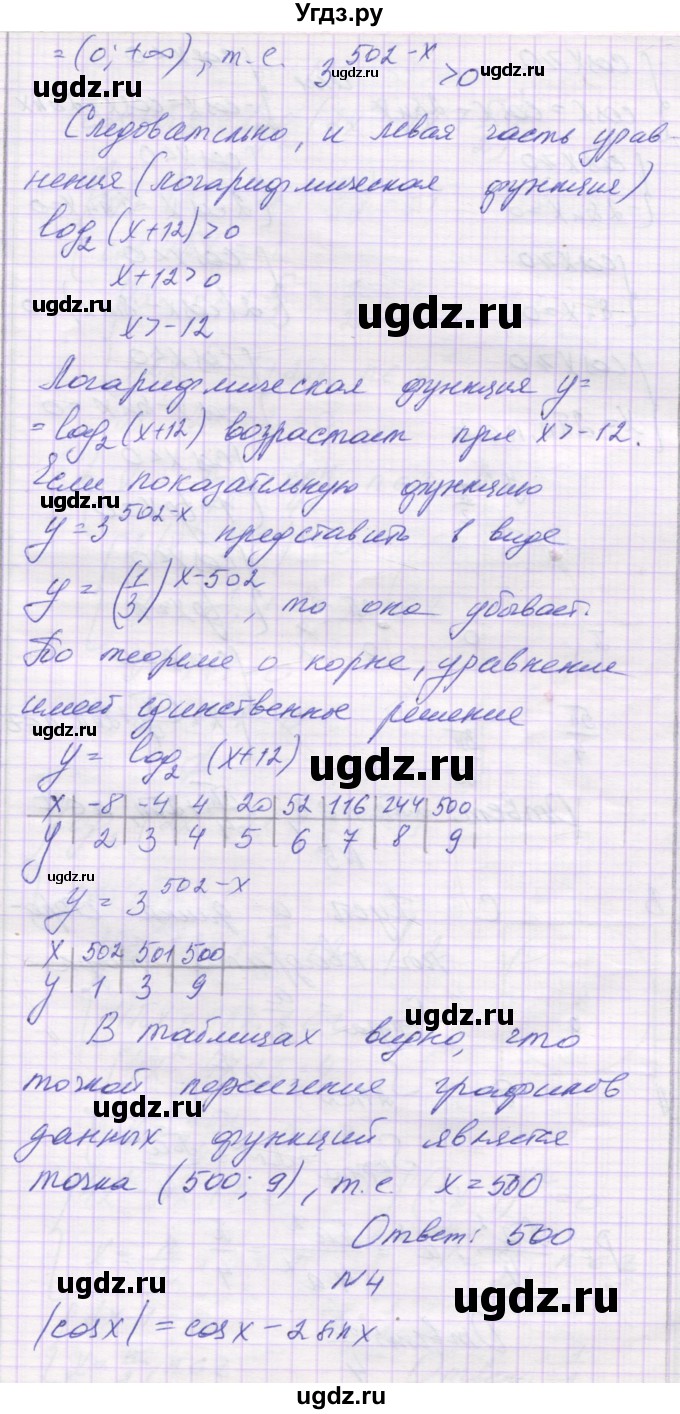 Угдз.ру
= (0; +∞), т.е. 3^502-x >0
ugdz.ru ugdz.ru
Следовательно, и левая часть урав-
нения (логарифмическая функция)
ugdz.ru
log₂ (x+12) >0
x+12>0
ugdz.ru ugdz.ru
x>-12
Логарифмическая функция y=
= log₂ (x+12) возрастает при x>-12.
ugdz.ru
Если показательную функцию
ugdz.ru
y = 3^502-x представить в виде
y = (1/3)^x-502, то она убывает.
По теореме о корне, уравнение
имеет единственное решение
ugdz.ru
y = log₂ (x+12)
ugdz.ru ugdz.ru
x | -8 | -4 | 4 | 20 | 52 | 116 | 244 | 500
y | 2 | 3 | 4 | 5 | 6 | 7 | 8 | 9
ugdz.ru
y = 3^502-x
x | 502 | 501 | 500
y | 1 | 3 | 9
ugdz.ru
В таблицах видно, что
точкой пересечения графиков
ugdz.ru
данных функций является
точка (500; 9), т.е. x = 500
Ответ: 500
N4
ugdz.ru ugdz.ru
|cosx| = cosx - 2sinx
ugdz.ru